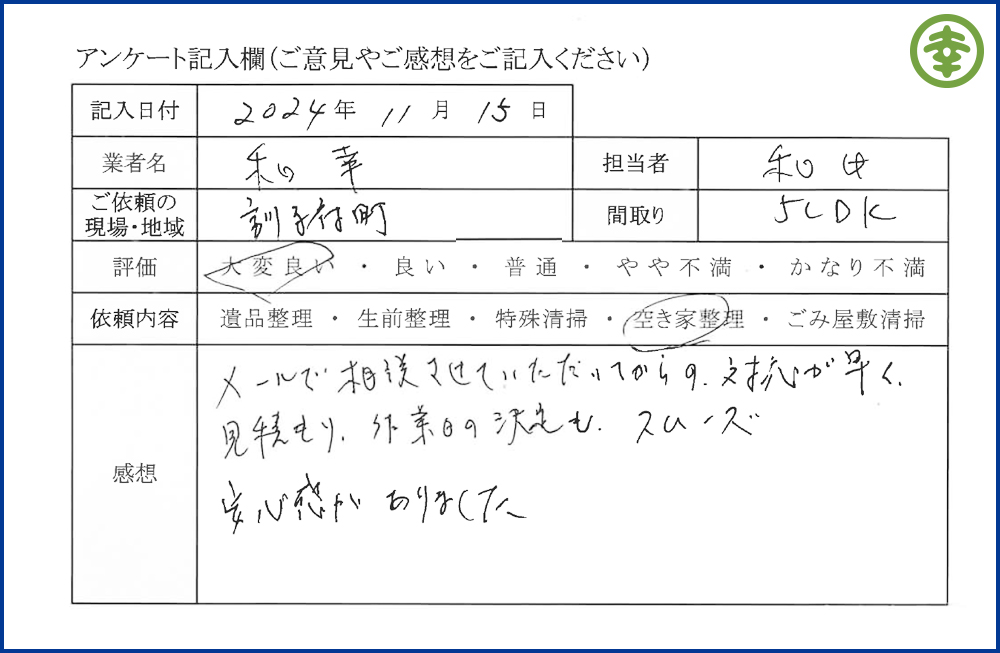 幸
アンケート記入欄(ご意見やご感想をご記入ください)
記入日付 2024年 11月 15日
業者名 和の幸 担当者 和田
ご依頼の
現場・地域 訓子府町 間取り 5LDK
評価 大変良い ・ 良い ・ 普通 ・ やや不満 ・ かなり不満
依頼内容 遺品整理 ・ 生前整理 ・ 特殊清掃 ・ 空き家整理 ・ ごみ屋敷清掃
感想
メールで相談させていただいてからの、対応が早く、
見積もり、作業日の決定も、スムーズ
安心感がありました